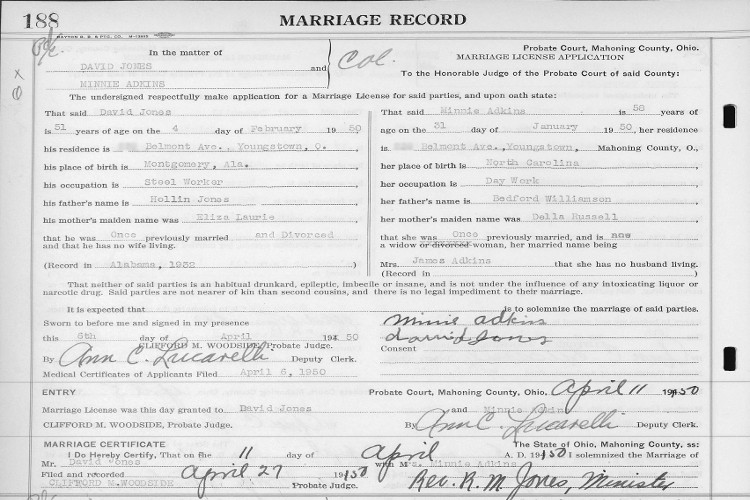 188
MARRIAGE RECORD
In the matter of
DAVID JONES and
MINNIE ADKINS
Col.
Probate Court, Mahoning County, Ohio.
MARRIAGE LICENSE APPLICATION
To the Honorable Judge of the Probate Court of said County:
The undersigned respectfully make application for a Marriage License for said parties, and upon oath state:
That said David Jones is
51 years of age on the 4 day of February 1950
his residence is Belmont Ave., Youngstown, O.
his place of birth is Montgomery, Ala.
his occupation is Steel Worker
his father's name is Hollin Jones
his mother's maiden name was Eliza Laurie
that he was Once previously married and Divorced
and that he has no wife living.
(Record in Alabama, 1932
That said Minnie Adkins is 58 years of
age on the 31 day of January 1950, her residence
is Belmont Ave., Youngstown, Mahoning County, O.,
her place of birth is North Carolina
her occupation is Day Work
her father's name is Bedford Williamson
her mother's maiden name was Della Russell
that she was Once previously married, and is
a widow or divorced woman, her married name being
Mrs. James Adkins that she has no husband living.
(Record in )
That neither of said parties is an habitual drunkard, epileptic, imbecile or insane, and is not under the influence of any intoxicating liquor or
narcotic drug. Said parties are not nearer of kin than second cousins, and there is no legal impediment to their marriage.
It is expected that is to solemnize the marriage of said parties.
Sworn to before me and signed in my presence
this 6th day of April 50
CLIFFORD M. WOODSIDE, Probate Judge.
By Ann C. Lucarelli Deputy Clerk.
Medical Certificates of Applicants Filed April 6, 1950
Minnie Adkins
David Jones
Consent
ENTRY
Probate Court, Mahoning County, Ohio, April 11 1950
Marriage License was this day granted to David Jones and Minnie Adkins
CLIFFORD M. WOODSIDE, Probate Judge. By Ann C. Lucarelli Deputy Clerk.
MARRIAGE CERTIFICATE
The State of Ohio, Mahoning County, ss:
I Do Hereby Certify, That on the 11 day of April A. D. 1950 I solemnized the Marriage of
Mr. David Jones with Mrs. Minnie Adkins
Filed and recorded April 27 1950
CLIFFORD M. WOODSIDE Probate Judge. Rev. R. M. Jones, Minister